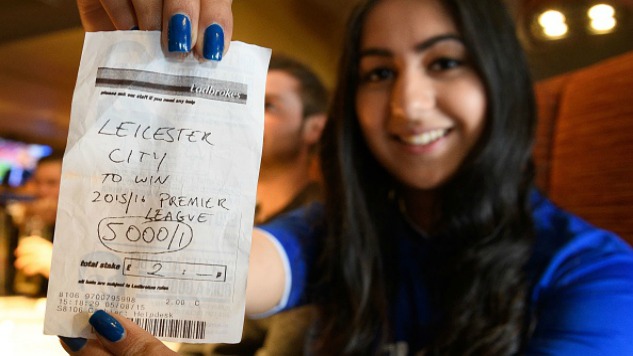 Ladbrokes
please ask our staff if you need any help
LEICESTER
CITY
TO WIN
2015/16 PREMIER
LEAGUE
5000/1
total stake £ 2 : —
all bets are subject to Ladbrokes rules
8106 9700795998 2.00 C
15:18:29 05/08/15
S8106 Helpdesk